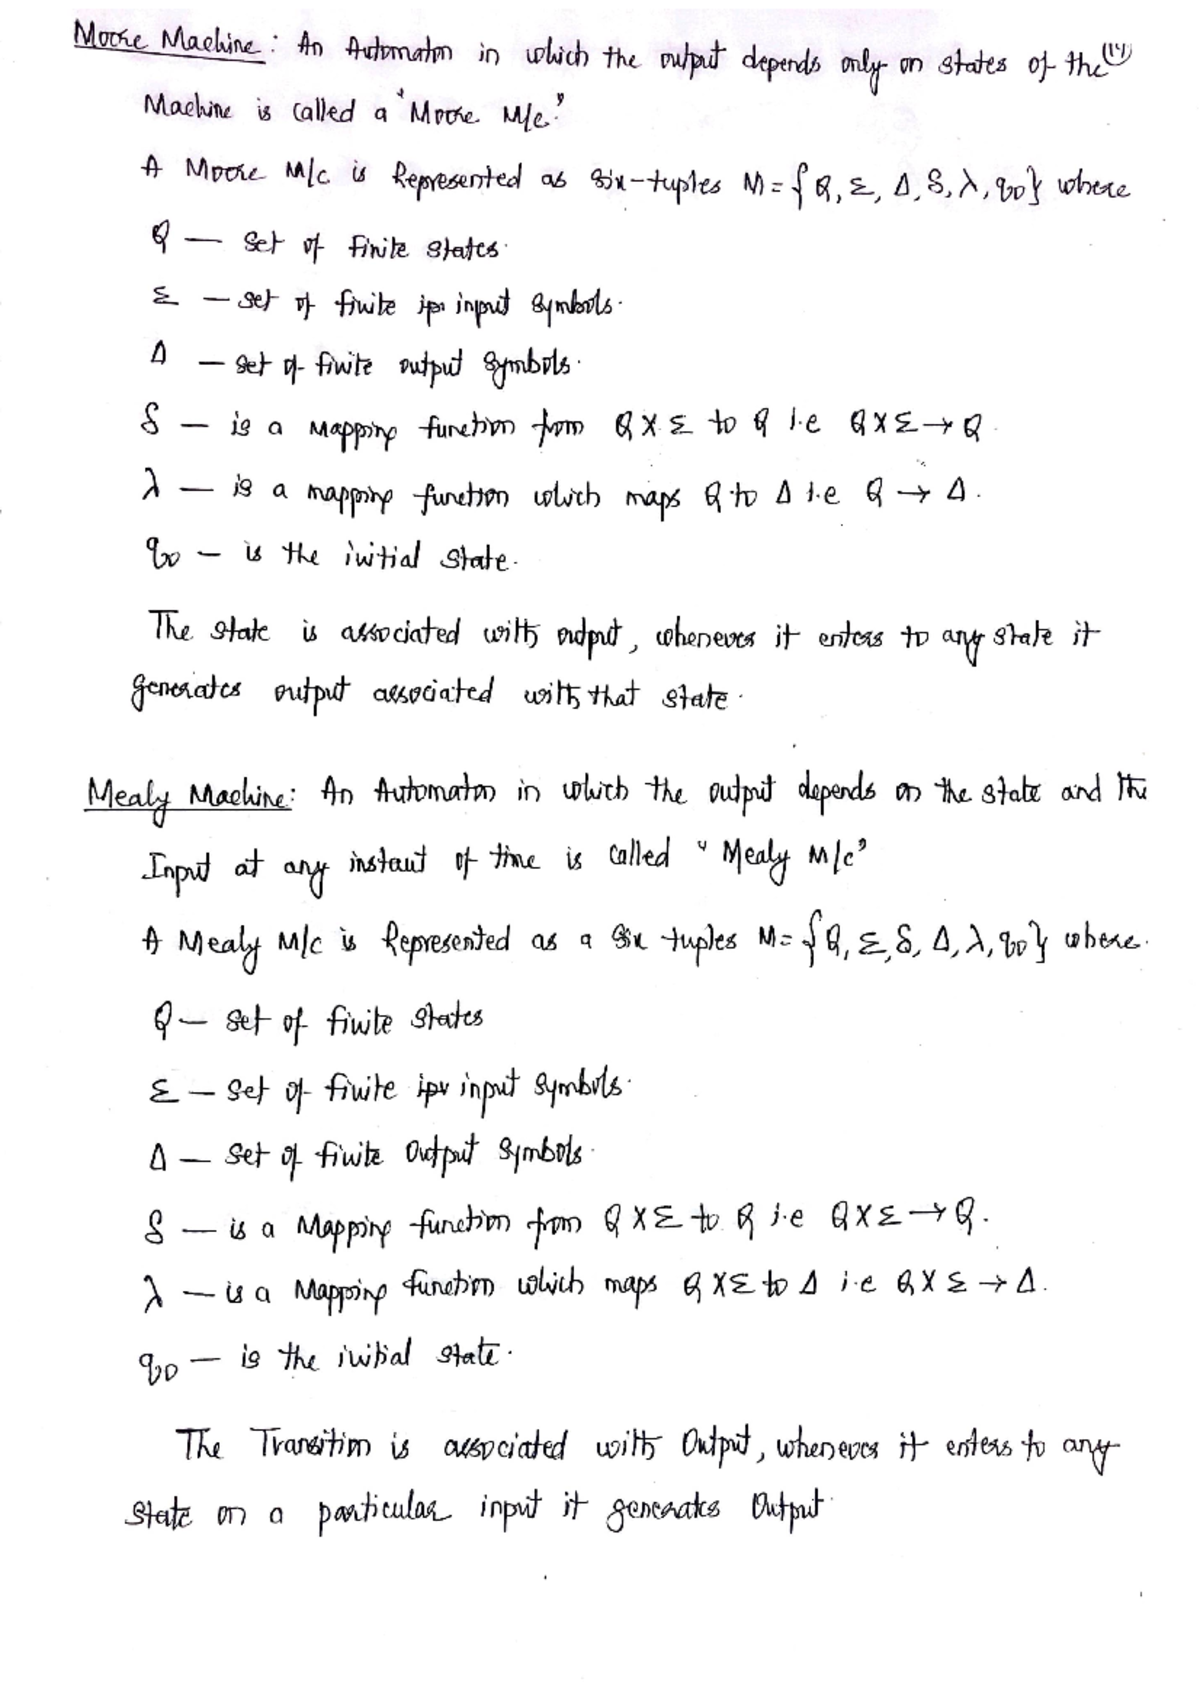 Moore Machine : An Automaton in which the output depends only on states of the (14)
Machine is called a "Moore M/c."
A Moore M/c is Represented as six-tuples M = {Q, Σ, Δ, δ, λ, q0} where
Q — set of finite states.
Σ — set of finite ip input symbols.
Δ — set of finite output symbols.
δ — is a Mapping function from Q X Σ to Q i.e Q X Σ → Q.
λ — is a mapping function which maps Q to Δ i.e Q → Δ.
q0 — is the initial state.
The state is associated with output, whenever it enters to any state it
generates output associated with that state.
Mealy Machine: An Automaton in which the output depends on the state and the
Input at any instant of time is called "Mealy M/c"
A Mealy M/c is Represented as a six tuples M = {Q, Σ, δ, Δ, λ, q0} where.
Q — set of finite states
Σ — set of finite ip input symbols.
Δ — set of finite Output symbols.
δ — is a Mapping function from Q X Σ to Q i.e Q X Σ → Q.
λ — is a Mapping function which maps Q X Σ to Δ i.e Q X Σ → Δ.
q0 — is the initial state.
The Transition is associated with Output, whenever it enters to any
state on a particular input it generates Output.